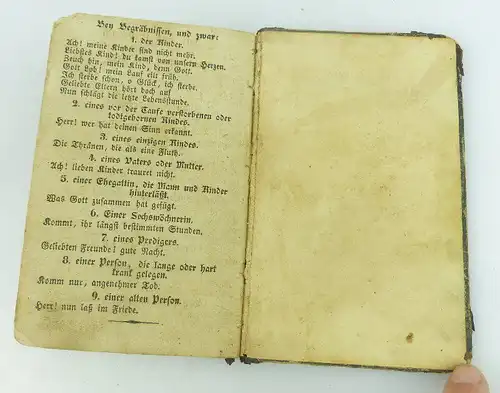 Bey Begräbnissen, und zwar:
1. der Kinder.
Ach! meine Kinder sind nicht mehr.
Liebstes Kind! du kamst von unsern Herzen.
Zeuch hin, mein Kind, denn Gott.
Gott Lob! mein Lauf eilt früh.
Ich sterbe schon, o Glück, ich sterbe.
Geliebte Eltern hört doch auf
Nun schlägt die letzte Lebensstunde.
2. eines vor der Taufe verstorbenen oder
todtgebornen Kindes.
Herr! wer hat deinen Sinn erkannt.
3. eines einzigen Kindes.
Die Thränen, die als eine Fluth.
4. eines Vaters oder Mutter.
Ach! lieben Kinder trauret nicht.
5. einer Ehegattin, die Mann und Kinder
hinterläßt.
Was Gott zusammen hat gefügt.
6. Einer Sechswöchnerin.
Kommt, ihr längst bestimmten Stunden.
7. eines Predigers.
Geliebten Freunde! gute Nacht.
8. einer Person, die lange oder hart
krank gelegen.
Komm nur, angenehmer Tod.
9. einer alten Person.
Herr! nun laß im Friede.